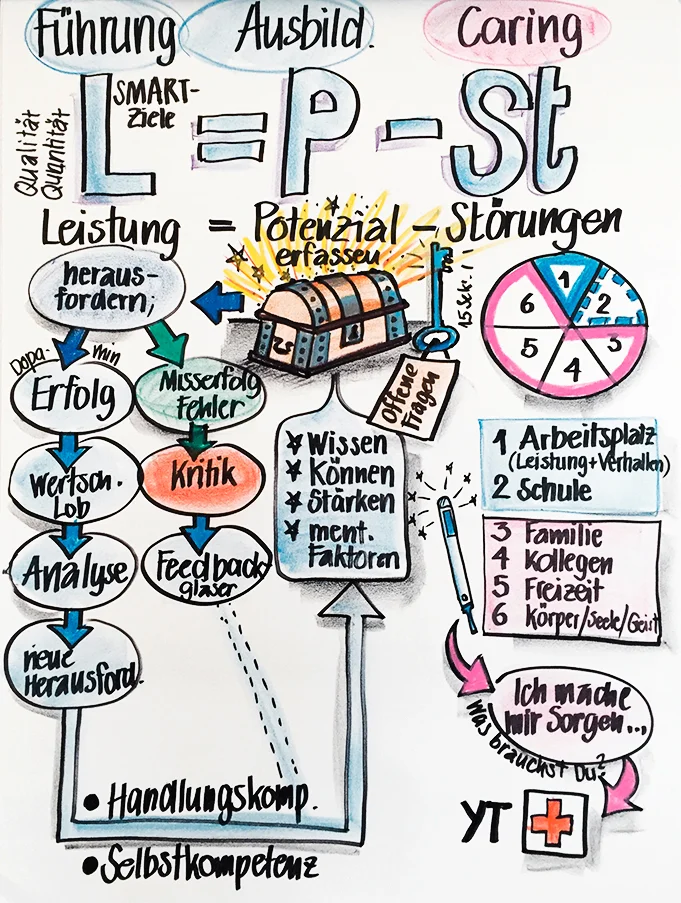 Führung Ausbild. Caring
Qualität
Quantität
L = P - St
SMART-
Ziele
Leistung = Potenzial - Störungen
erfassen
heraus-
fordern;
15 Sek.!
Offene
Fragen
Dopa- min
Erfolg
Misserfolg
Fehler
Wertsch.
Lob
Kritik
Analyse
Feedback
gläser
neue
Herausford.
Wissen
Können
Stärken
ment.
Faktoren
1
2
3
4
5
6
1 Arbeitsplatz
(Leistung+Verhalten)
2 Schule
3 Familie
4 Kollegen
5 Freizeit
6 Körper/Seele/Geist
Ich mache
mir Sorgen...
Was brauchst Du?
YT
• Handlungskomp.
• Selbstkompetenz